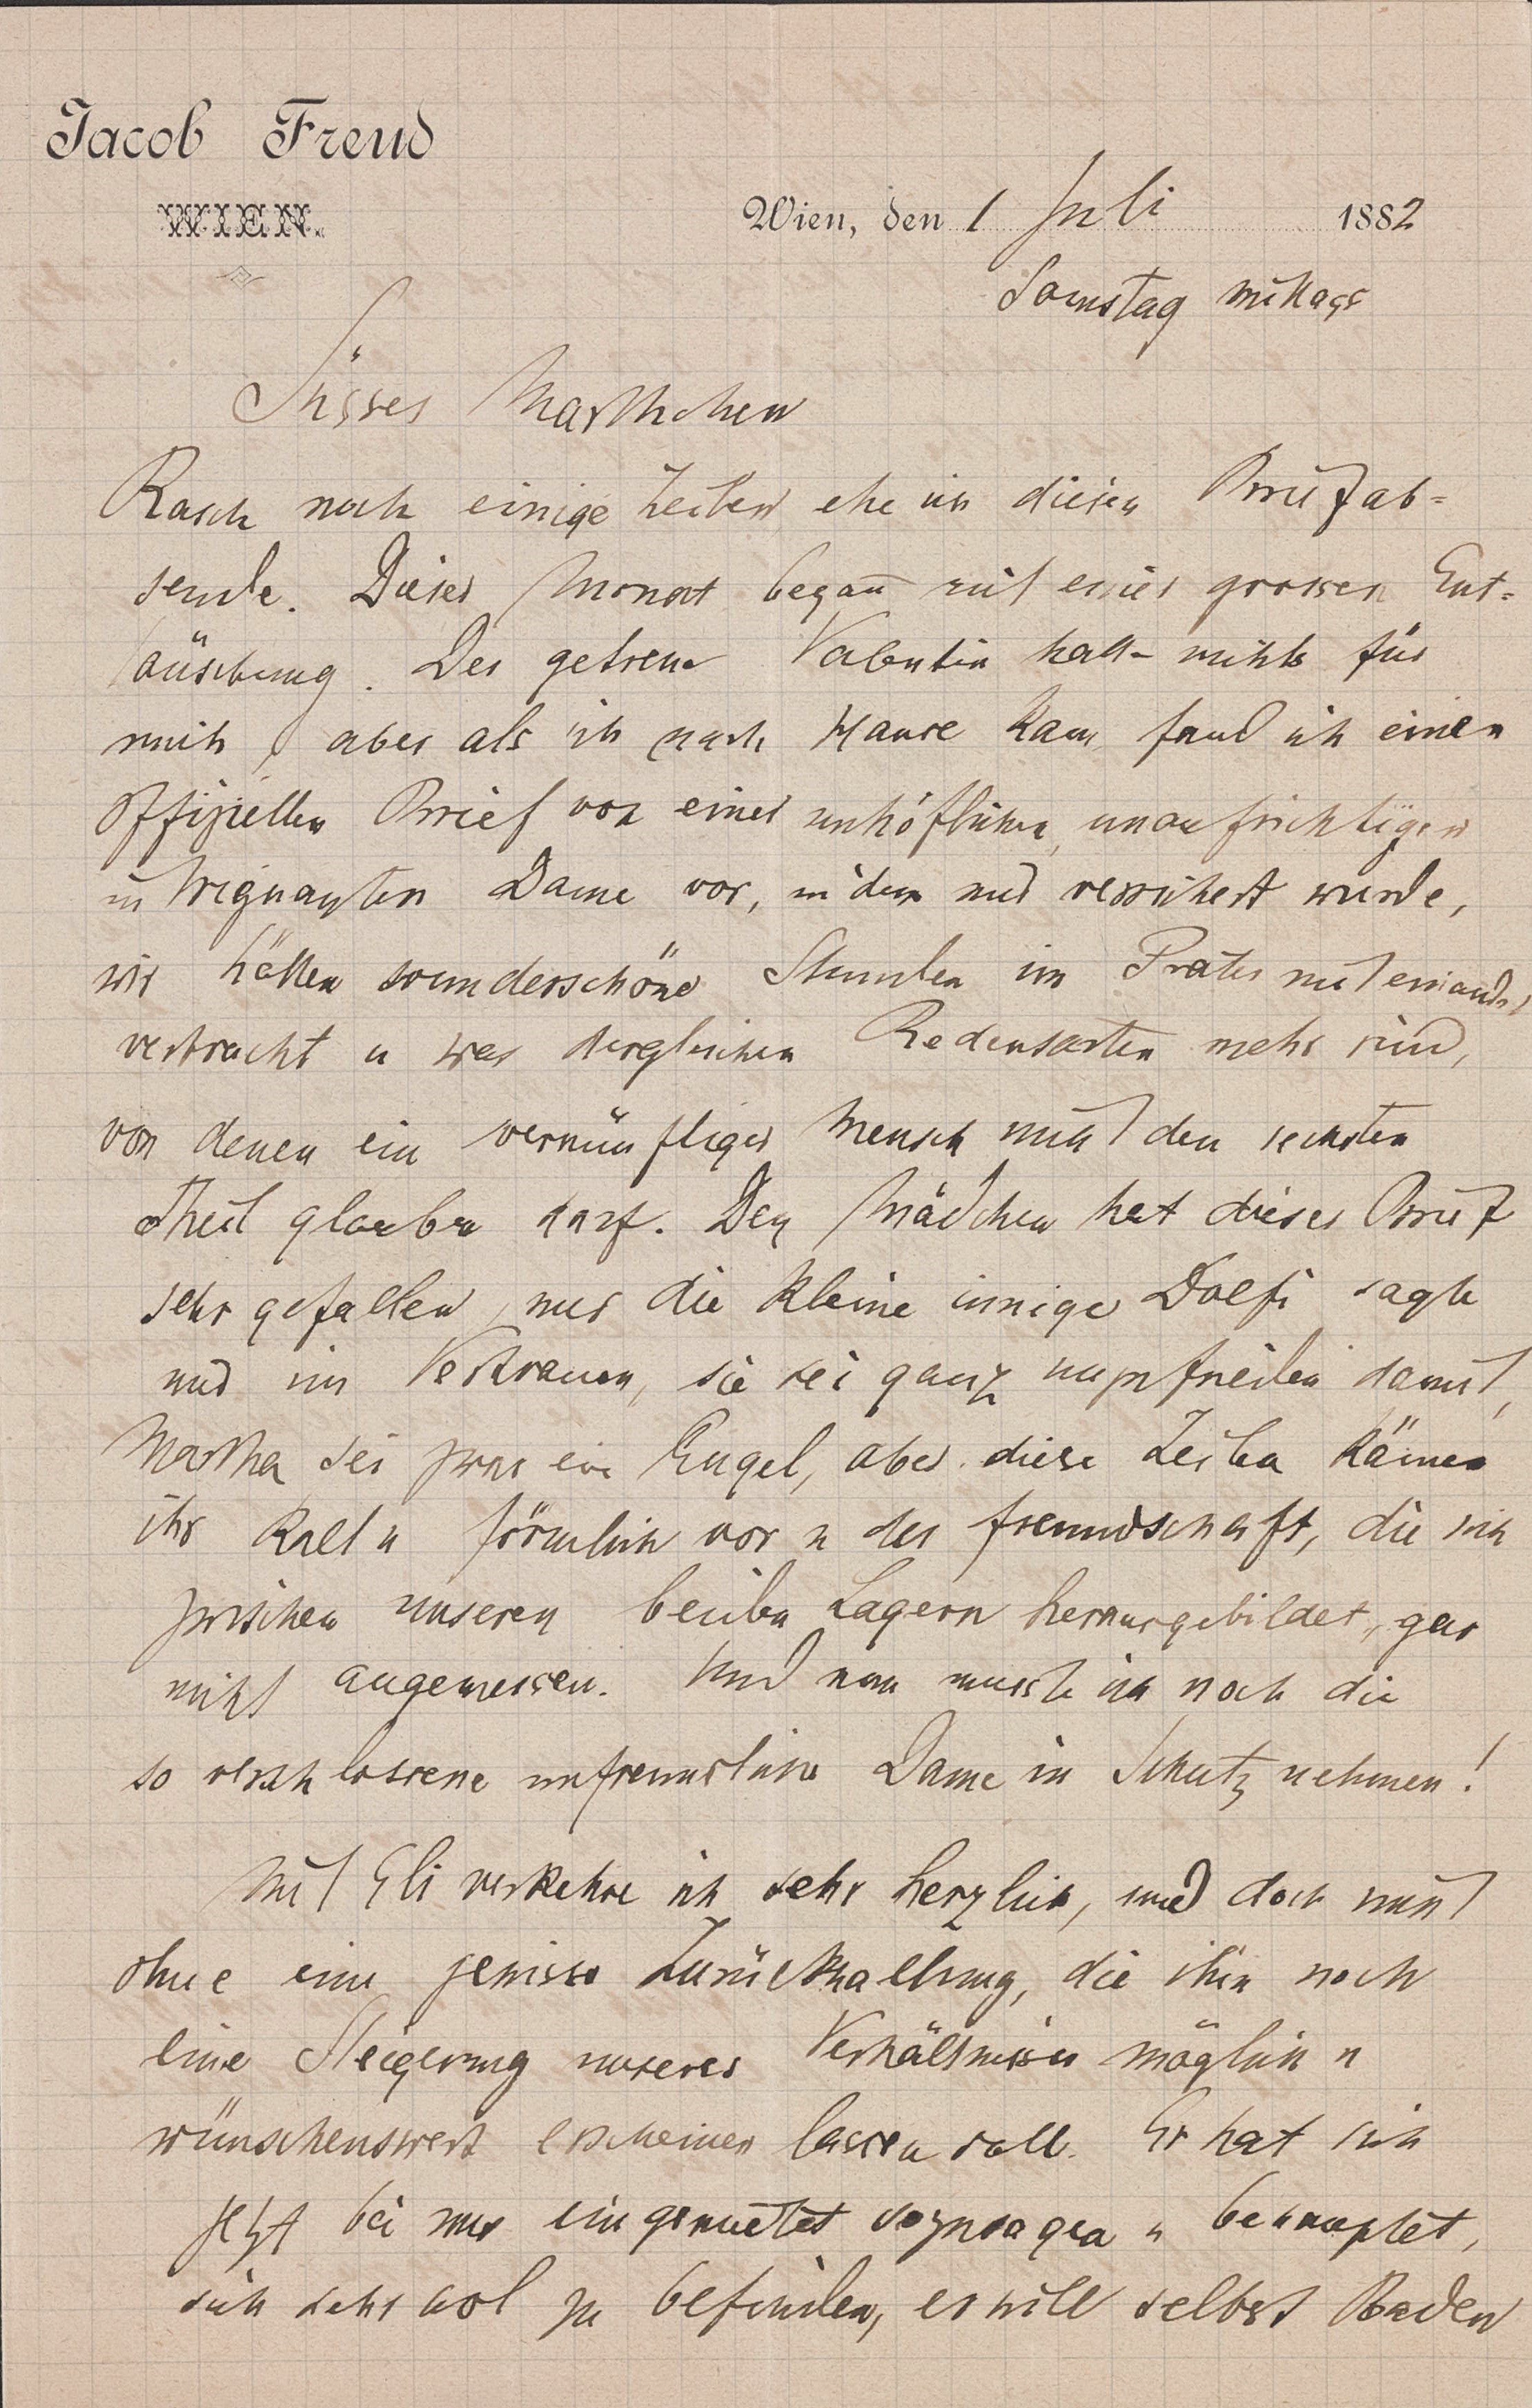 Jacob Freud
WIEN.
Wien, den 1 Juli 1882
Samstag mittags
Süsses Marthchen
Rasch noch einige Zeilen ehe ich diesen Brief ab=
sende. Dieser Monat began̄ mit einer grossen Ent=
täuschung. Der getreue Valentin hatte nichts für
mich, aber als ich nach Hause kam, fand ich einen
offiziellen Brief von einer unhöflichen, unaufrichtigen
intriguanten Dame vor, in dem mir versichert wurde,
wir hätten wunderschöne Stunden im Prater miteinander
verbracht u was dergleichen Redensarten mehr sind,
von denen ein vernünftiger Mensch nicht den sechsten
Theil glauben darf. Den Mädchen hat dieser Brief
sehr gefallen, nur die kleine innige Dolfi sagte
mir im Vertrauen, sie sei ganz unzufrieden damit,
Martha sei zwar ein Engel, aber diese Zeilen kämen
ihr kalt u förmlich vor u der Freundschaft, die sich
zwischen unseren beiden Lagern herausgebildet, gar
nicht angemessen. Und nun musste ich noch die
so verschlossene unfreundliche Dame in Schutz nehmen!
Mit Eli verkehre ich sehr herzlich, und doch nicht
ohne eine gewisse Zurückhaltung, die ihm noch
eine Steigerung unseres Verhältnisses möglich u
wünschenswert erscheinen lassen soll. Er hat sich
jetzt bei mir eingemietet sozusagen u behauptet,
sich sehr wol zu befinden, er will selbst Baden